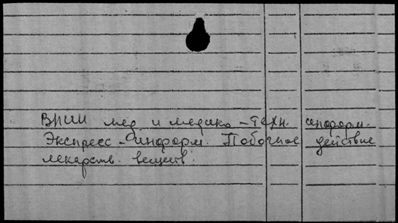 ВНИИ мед и медико-техн. информ.
Экспресс-информ. Побочное действие
лекарств. веществ.